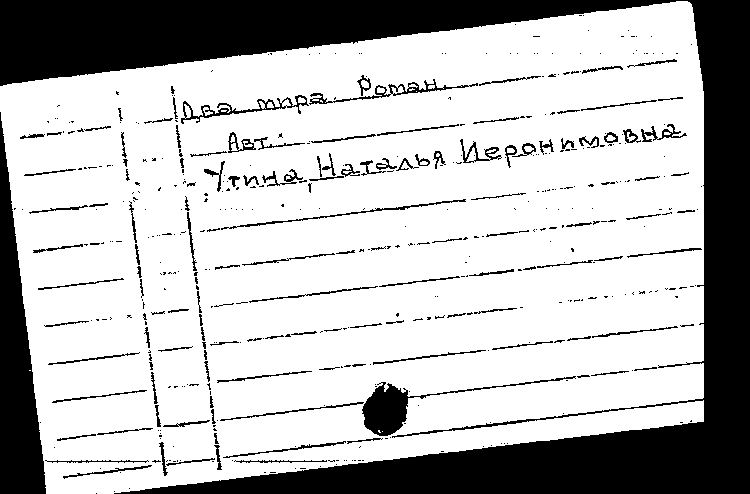 Два мира. Роман.
Авт.:
Утина, Наталья Иеронимовна.